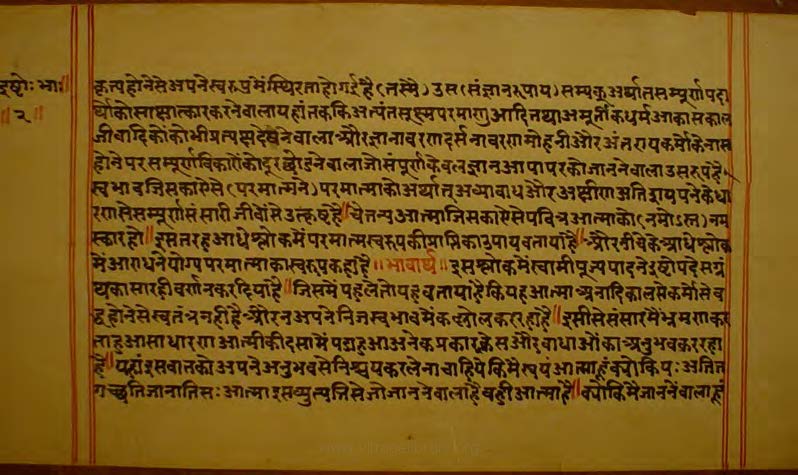 इष्टोः भाः॥
॥२॥
कृत्यहोनेसे अपनेस्वरूपमेंस्थिरताहोगई है (तस्मै) उस (संज्ञानरूपाय) सम्यक् अर्थात सम्पूर्ण पदा
र्थोकोसाक्षात्कारकरनेवाला यहांतककि अत्यंतसूक्ष्मपरमाणु आदि तथा अमूर्तीक धर्म आकास काल
जीवादिकोकोभीप्रत्यक्षदेषनेवाला और ज्ञानावरण दर्सनावरण मोहनी और अंतराय कर्मोकेनास
होनेपर सम्पूर्णविकारोंकोदूर छोडनेवाला जो संपूर्ण केवलज्ञान आपापरकोजाननेवाला उसरूपहै
स्वभावजिसका ऐसे (परमात्मने) परमात्माको अर्थात अव्याबाध और अक्षीण अतिशयपनेकेधा
रणसे सम्पूर्ण संसारी जीवोंसे उत्कृष्टहै॥ चेतन्य आत्माजिसका ऐसे पवित्र आत्माको (नमोऽस्तु) नम
स्कारहो॥ इसतरह आधेश्लोकमें परमात्मस्वरूपकीप्राप्तिकाउपाय वतायाहै॥ औरनीचेके आधेश्लोक
में आराधनेयोग्य परमात्माकास्वरूपकहाहै॥ ॥भावार्थ॥ इसश्लोकमेंस्वामीपूज्यपादनेइष्टोपदेसग्रं
थकासारहीवर्णनकरदियाहै॥ जिसमें पहलेतोयहवतायाहैकियह आत्मा अनादिकालसेकर्मोसेव
द्धहोनेसेस्वतंत्रनहीहै औरन अपनेनिजस्वभावमेंकल्लोलकररहाहै॥ इसीसेसंसारमेंभ्रमणकर
ताहुआसाधारण आत्मीकीदसामें पडाहुआ अनेकप्रकारके और वाधाओंकाअनुभवकररहा
है॥ यहांइसवातको अपने अनुभवसेनिश्चयकरलेनाचाहियेकिमैंस्वयं आत्माहूंक्योकियः अतति
गच्छतिजानातिसः आत्मा इसव्युत्पत्तिसेजोजाननेवालाहैवहीआत्माहै॥ क्योकिमैंजाननेवालाहूं